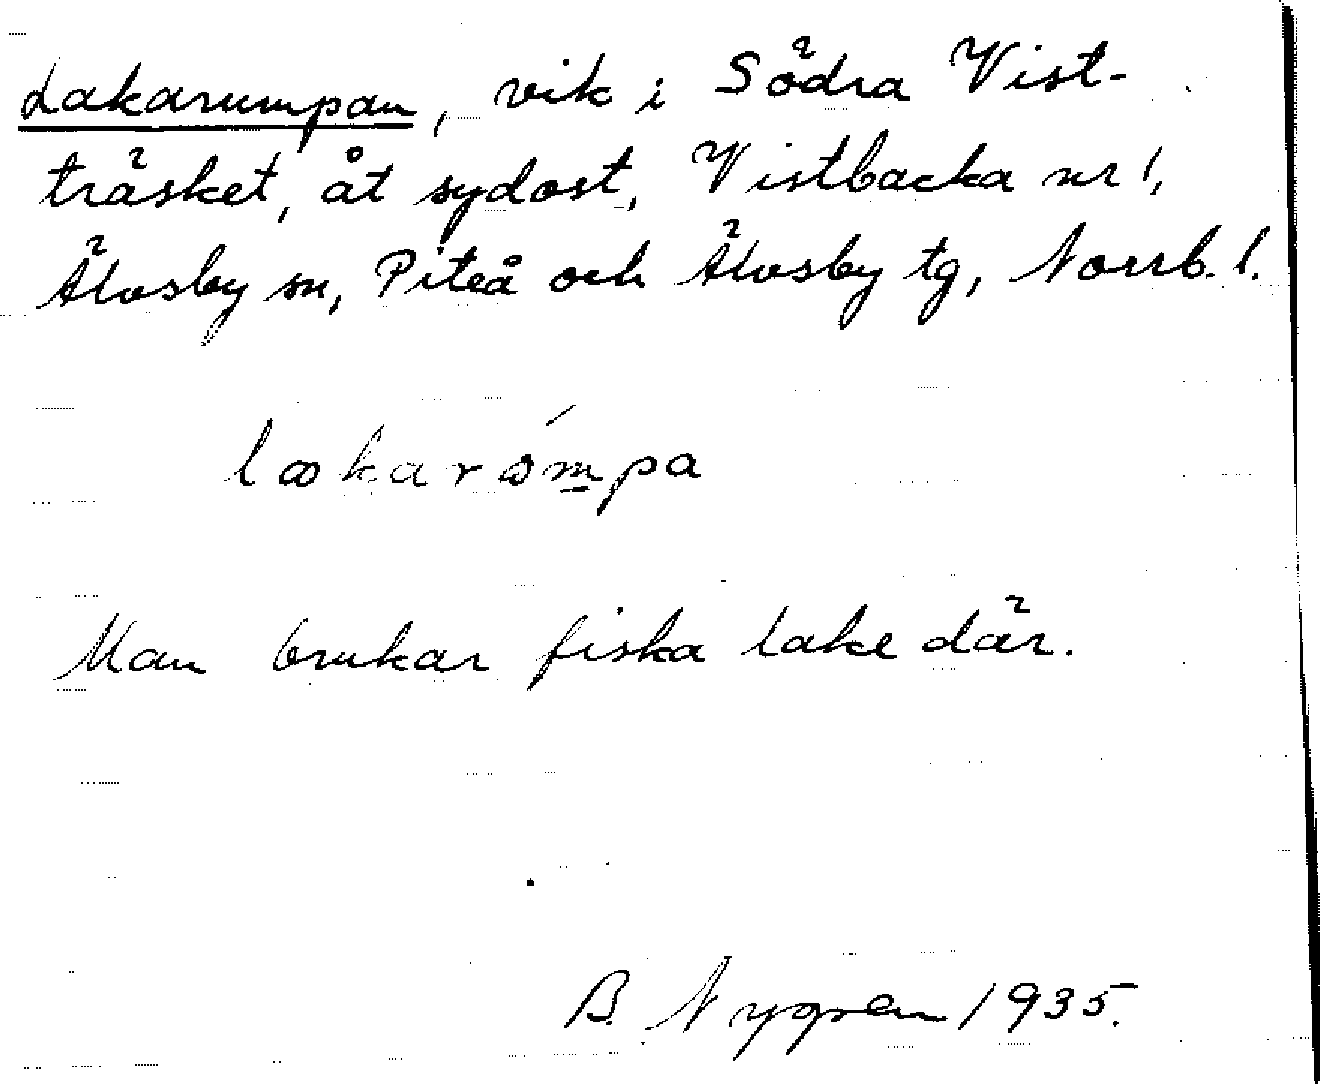 Lakarumpan, vik i Södra Vist-
träsket, åt sydost, Vistbacka nr 1,
Älvsby sn, Piteå och Älvsby tg, Norrb. l.
Man brukar fiska lake där.
B. Nygren 1935.